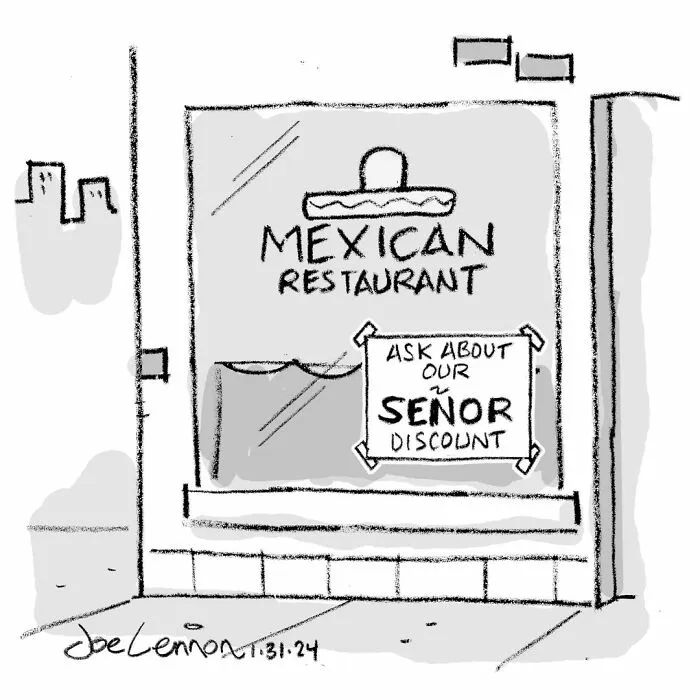 MEXICAN
RESTAURANT
ASK ABOUT
OUR
SEÑOR
DISCOUNT
Joe Lennon 1.31.24